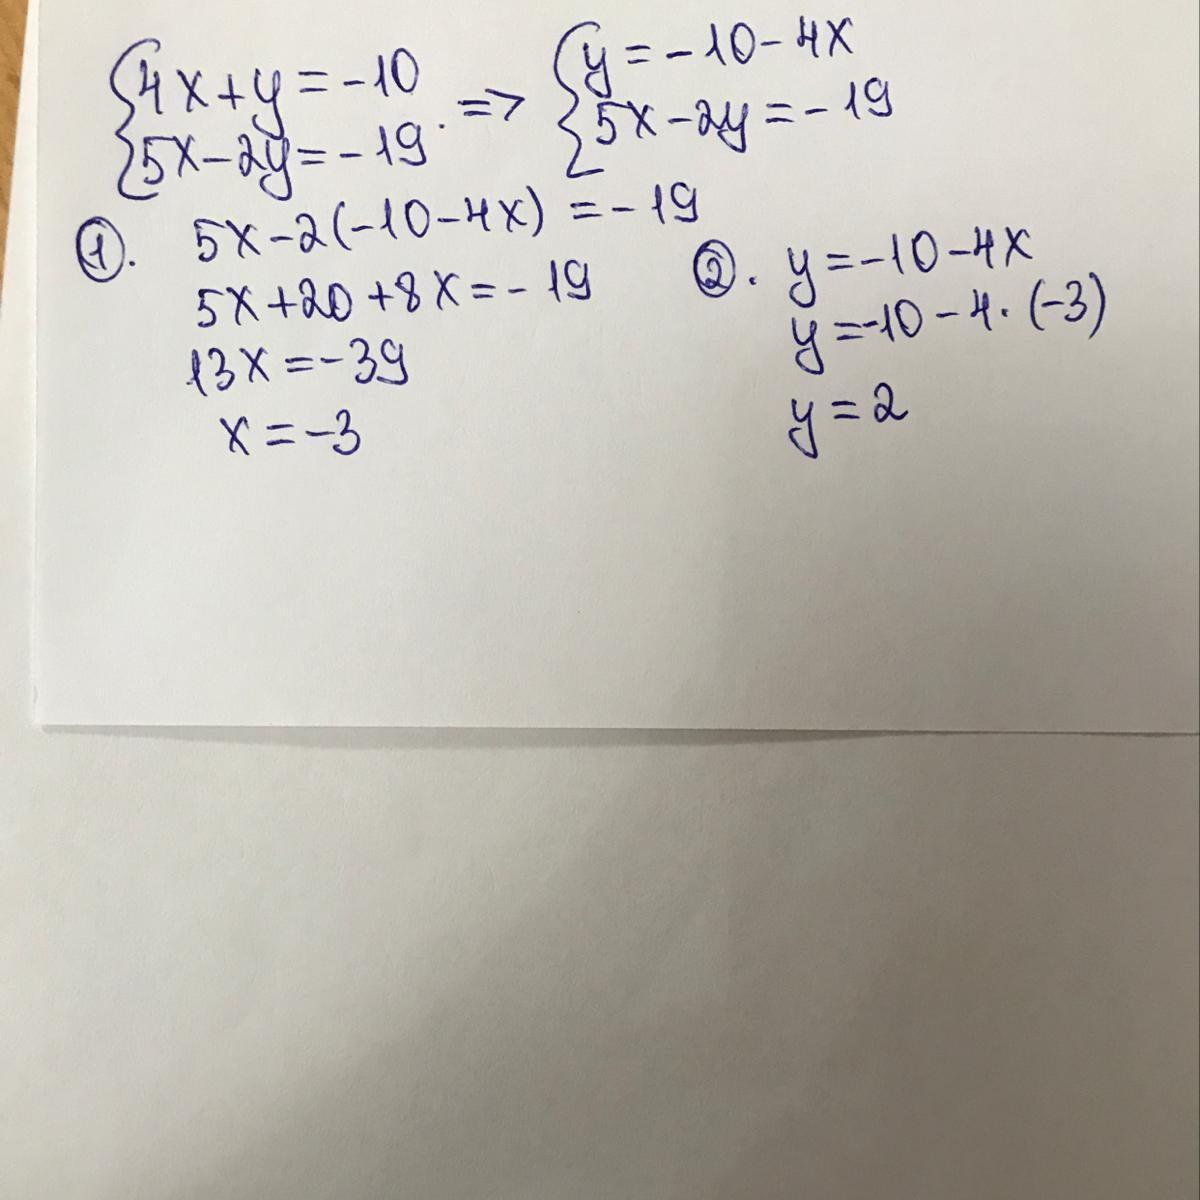 {4x+y=-10 . => {y=-10-4x
5x-2y=-19 5x-2y=-19
①. 5x-2(-10-4x)=-19
5x+20+8x=-19
13x=-39
x=-3
②. y=-10-4x
y=-10-4·(-3)
y=2